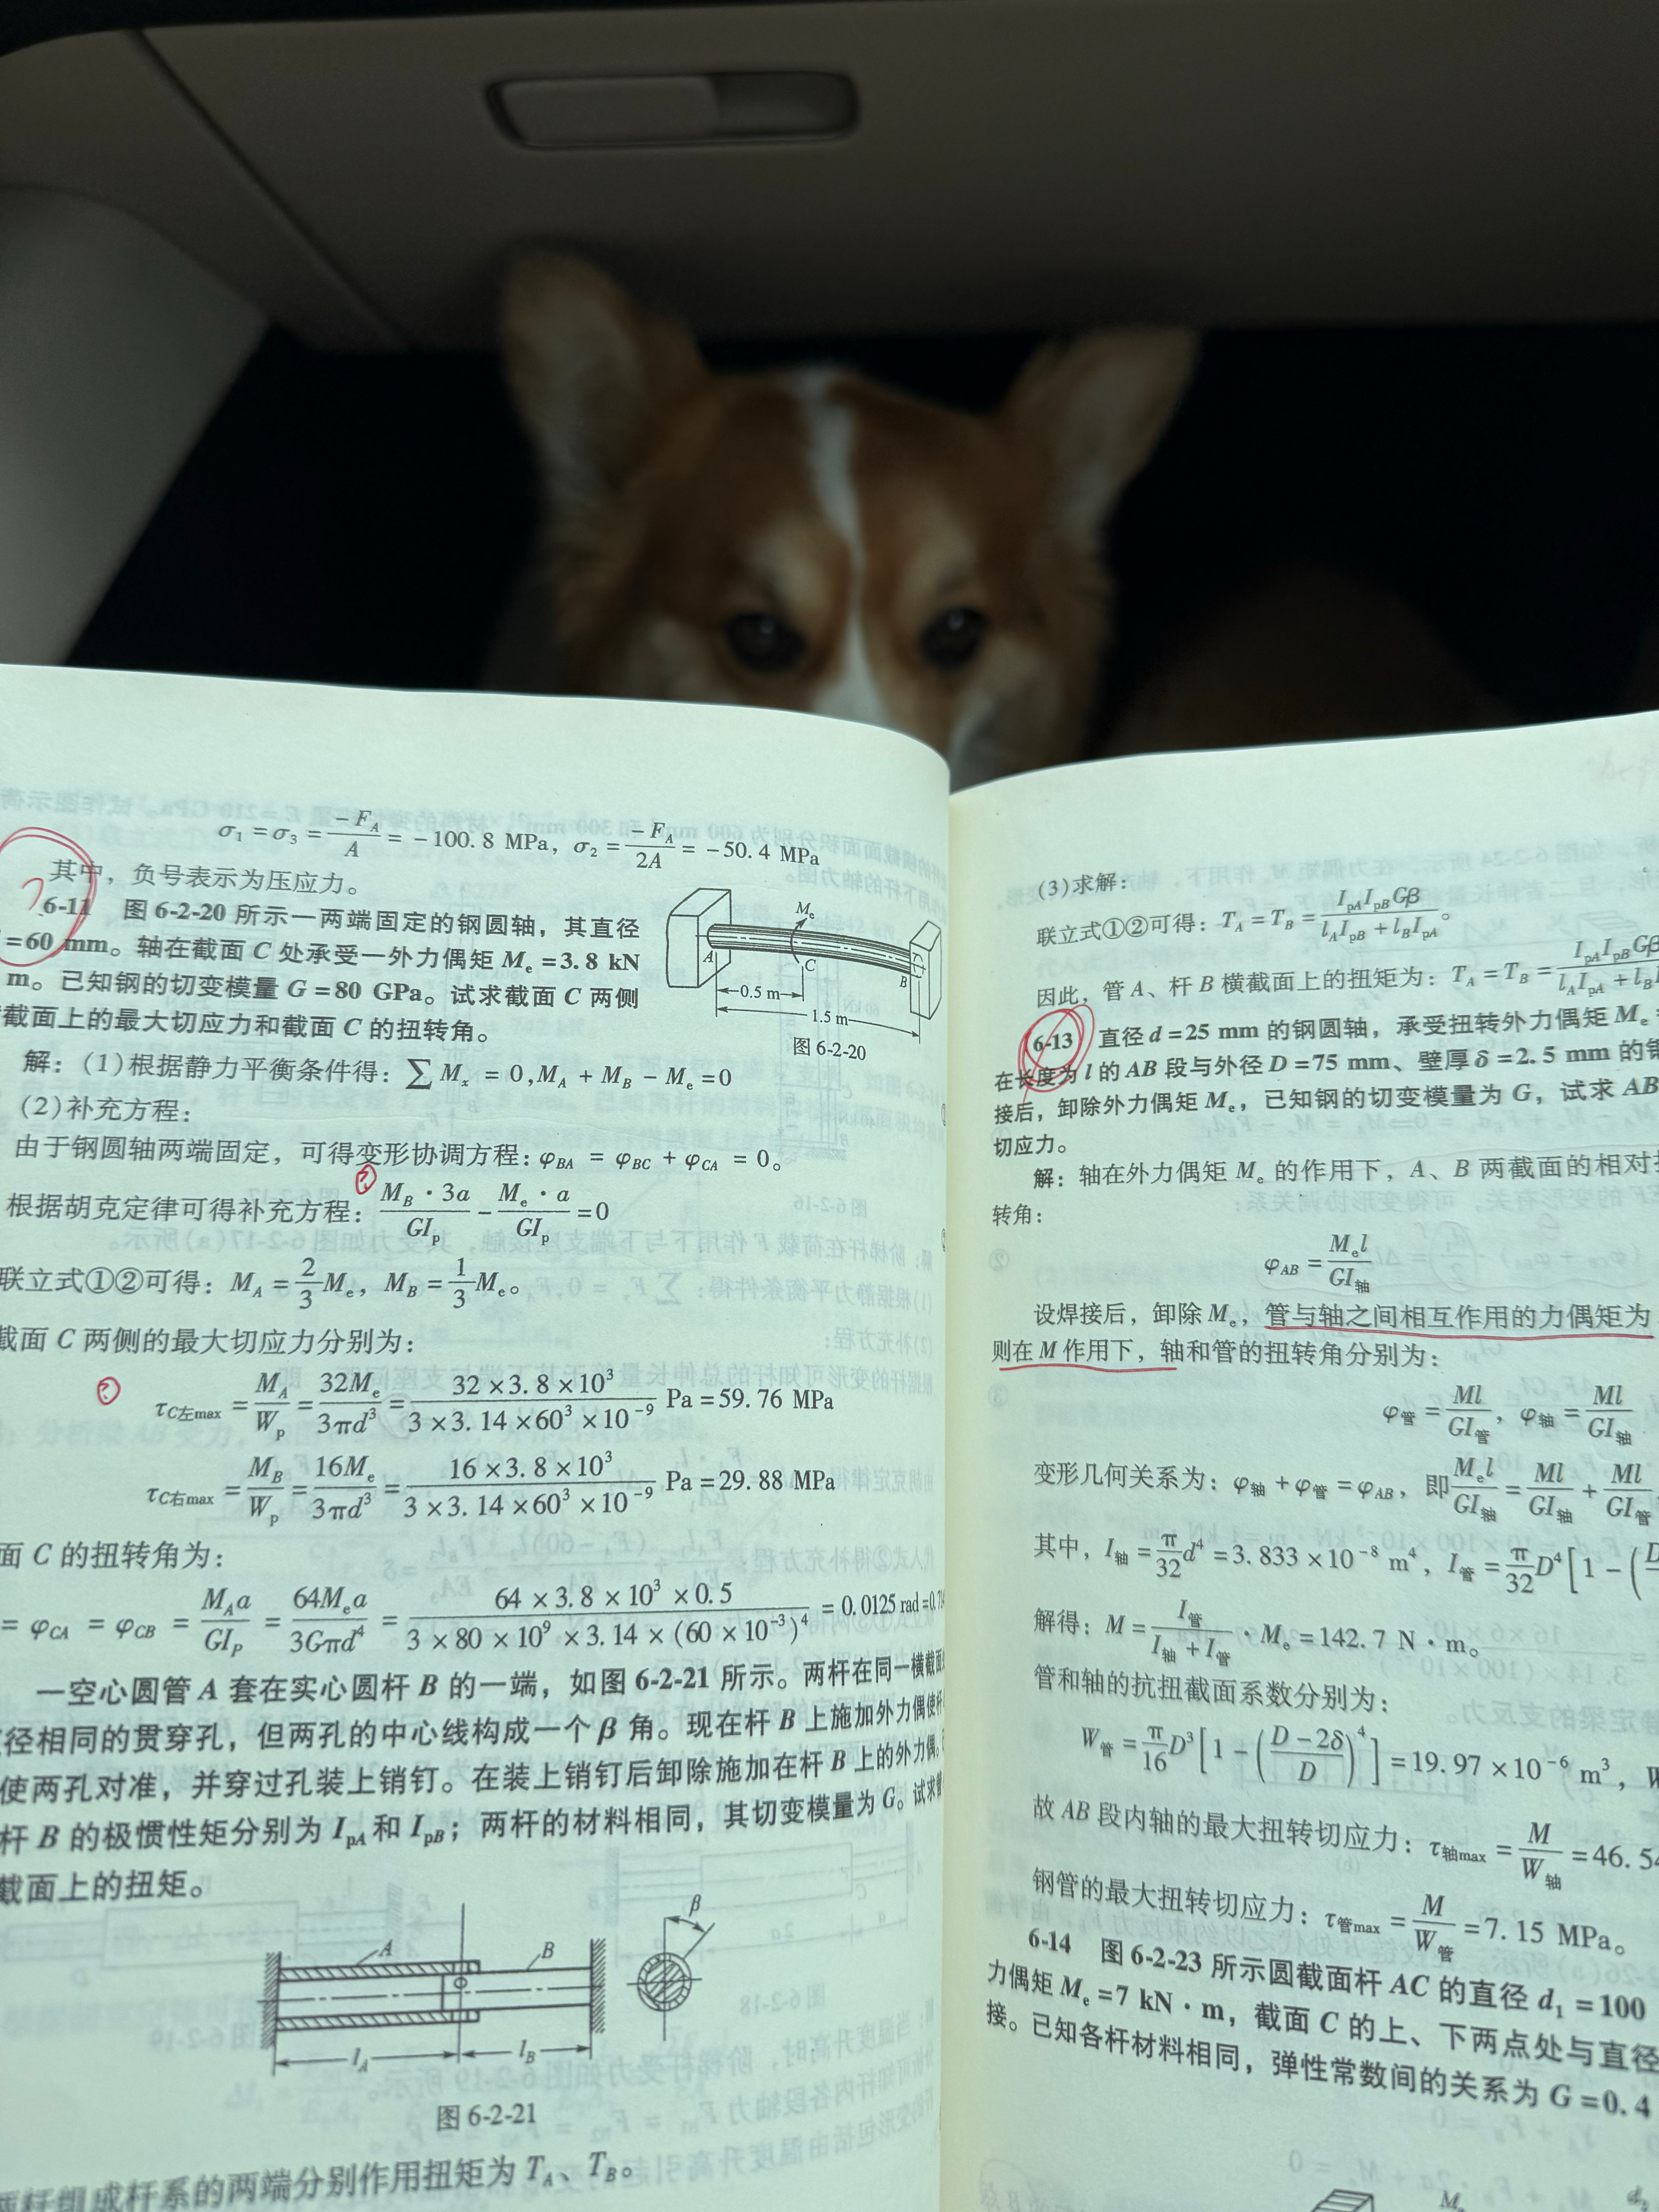 σ₁ = σ₃ = −F_A/A = −100.8 MPa, σ₂ = −F_A/2A = −50.4 MPa
其中，负号表示为压应力。
6-11 图 6-2-20 所示一两端固定的钢圆轴，其直径
=60 mm。轴在截面 C 处承受一外力偶矩 Mₑ=3.8 kN
m。已知钢的切变模量 G=80 GPa。试求截面 C 两侧
截面上的最大切应力和截面 C 的扭转角。
Mₑ
A
C
B
0.5 m
1.5 m
图 6-2-20
解：(1)根据静力平衡条件得：∑Mₓ = 0, M_A + M_B − Mₑ = 0
(2)补充方程：
由于钢圆轴两端固定，可得变形协调方程：φ_BA = φ_BC + φ_CA = 0。
?
根据胡克定律可得补充方程：M_B·3a/GI_p − Mₑ·a/GI_p = 0
联立式①②可得：M_A = 2/3 Mₑ，M_B = 1/3 Mₑ。
截面 C 两侧的最大切应力分别为：
? τ_C左max = M_A/W_p = 32Mₑ/3πd³ = 32×3.8×10³/3×3.14×60³×10⁻⁹ Pa = 59.76 MPa
τ_C右max = M_B/W_p = 16Mₑ/3πd³ = 16×3.8×10³/3×3.14×60³×10⁻⁹ Pa = 29.88 MPa
面 C 的扭转角为：
= φ_CA = φ_CB = M_A a/GI_P = 64Mₑa/3Gπd⁴ = 64×3.8×10³×0.5/3×80×10⁹×3.14×(60×10⁻³)⁴ = 0.0125 rad
一空心圆管 A 套在实心圆杆 B 的一端，如图 6-2-21 所示。两杆在同一横截面
径相同的贯穿孔，但两孔的中心线构成一个 β 角。现在杆 B 上施加外力偶使杆
使两孔对准，并穿过孔装上销钉。在装上销钉后卸除施加在杆 B 上的外力偶。
杆 B 的极惯性矩分别为 I_pA 和 I_pB；两杆的材料相同，其切变模量为 G。试求
截面上的扭矩。
A
B
β
l_A
l_B
图 6-2-21
两杆组成杆系的两端分别作用扭矩为 T_A、T_B。
(3)求解：
联立式①②可得：T_A = T_B = I_pA I_pB Gβ/l_A I_pB + l_B I_pA。
因此，管 A、杆 B 横截面上的扭矩为：T_A = T_B = I_pA I_pB Gβ/l_A I_pA + l_B
6-13 直径 d=25 mm 的钢圆轴，承受扭转外力偶矩 Mₑ
在长度为 l 的 AB 段与外径 D=75 mm、壁厚 δ=2.5 mm 的
接后，卸除外力偶矩 Mₑ，已知钢的切变模量为 G，试求 AB
切应力。
解：轴在外力偶矩 Mₑ 的作用下，A、B 两截面的相对
转角：
φ_AB = Mₑl/GI_轴
设焊接后，卸除 Mₑ，管与轴之间相互作用的力偶矩为
则在 M 作用下，轴和管的扭转角分别为：
φ_管 = Ml/GI_管，φ_轴 = Ml/GI_轴
变形几何关系为：φ_轴 + φ_管 = φ_AB，即 Mₑl/GI_轴 = Ml/GI_轴 + Ml/GI_管
其中，I_轴 = π/32 d⁴ = 3.833×10⁻⁸ m⁴，I_管 = π/32 D⁴[1−(
解得：M = I_管/I_轴 + I_管 · Mₑ = 142.7 N·m。
管和轴的抗扭截面系数分别为：
W_管 = π/16 D³[1−(D−2δ/D)⁴] = 19.97×10⁻⁶ m³，
故 AB 段内轴的最大扭转切应力：τ_轴max = M/W_轴 = 46.54
钢管的最大扭转切应力：τ_管max = M/W_管 = 7.15 MPa。
6-14 图 6-2-23 所示圆截面杆 AC 的直径 d₁=100
力偶矩 Mₑ=7 kN·m，截面 C 的上、下两点处与直径
接。已知各杆材料相同，弹性常数间的关系为 G=0.4